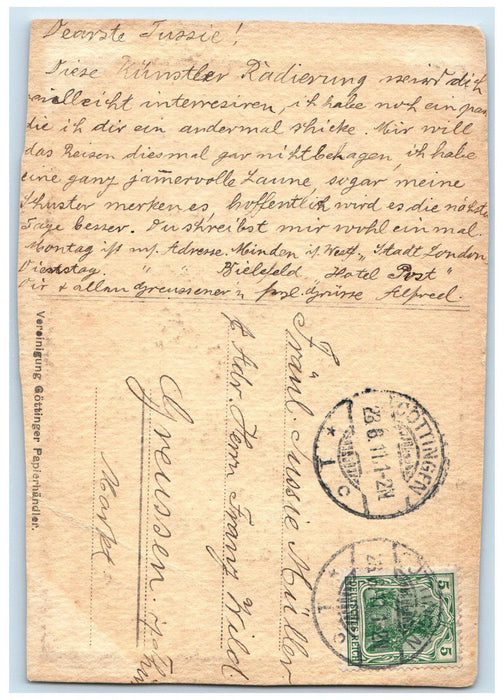 Dearste Tussie!
Diese Künstler Radierung wird dich
vielleicht interresiren, ich habe noch ein paar
die ich dir ein andermal schicke. Mir will
das Reisen diesmal gar nicht behagen, ich habe
eine ganz jammervolle Laune, sogar meine
Schuster merken es, hoffentlich wird es die nächsten
Tage besser. Du schreibst mir wohl einmal.
Montag ist m. Adresse. Minden i/ Westf. "Stadt London
Dienstag. " " Bielefeld Hotel Post"
Dir + allen Greussener n Grüsse Alfred.
Vereinigung Göttinger Papierhändler.
Fräul. Tussie Müller
p. Adr. Herrn Franz Wild.
Greussen. i/Thür
Markt
GÖTTINGEN
23.6.11.1-2N
* 1 c
GÖTTINGEN
* 1 c
5 5
DEUTSCHES REICH